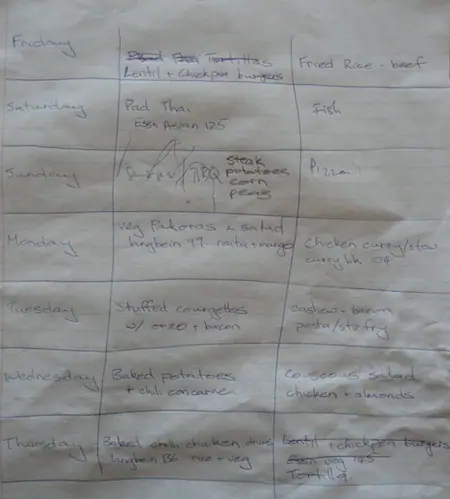 Friday
Tortillas
Lentil + Chickpea burgers
Fried Rice - beef
Saturday
Pad Thai
Essn Asian 125
Fish
Sunday
BBQ
steak
potatoes
corn
peas
Pizza
Monday
veg Pakoras + salad
langbein 97 raita + mango
Chicken curry/stew
curry bk 04
Tuesday
Stuffed courgettes
w/ orzo + bacon
cashew + bacon
pasta/stir fry
Wednesday
Baked potatoes
+ chili concarne
Couscous salad
chicken + almonds
Thursday
Baked chilli chicken
langbein 136 rice + veg
Lentil + chickpea burgers
Essn veg 145
Tortilla